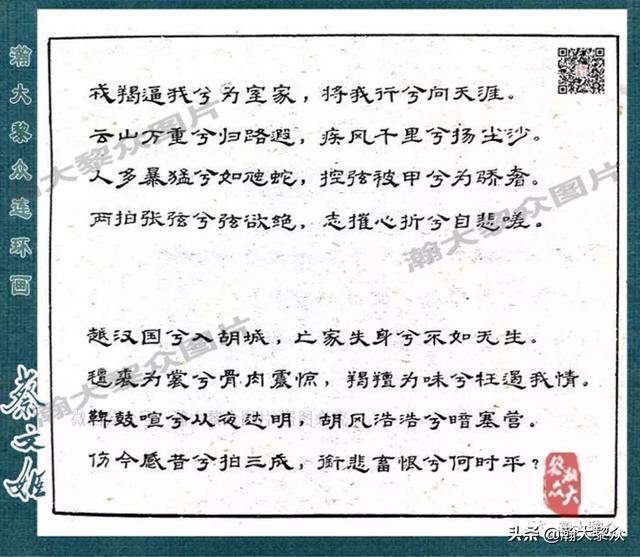 戎羯逼我兮为室家，将我行兮向天涯。
云山万重兮归路遐，疾风千里兮扬尘沙。
人多暴猛兮如虺蛇，控弦被甲兮为骄奢。
两拍张弦兮弦欲绝，志摧心折兮自悲嗟。
越汉国兮入胡城，亡家失身兮不如无生。
毡裘为裳兮骨肉震惊，羯羶为味兮枉遏我情。
鞞鼓喧兮从夜达明，胡风浩浩兮暗塞营。
伤今感昔兮拍三成，衔悲畜恨兮何时平？
瀚大黎众连环画
蔡文姬
瀚大黎众图片
瀚大黎众图片
瀚大黎众图片
瀚大黎众
头条 @瀚大黎众